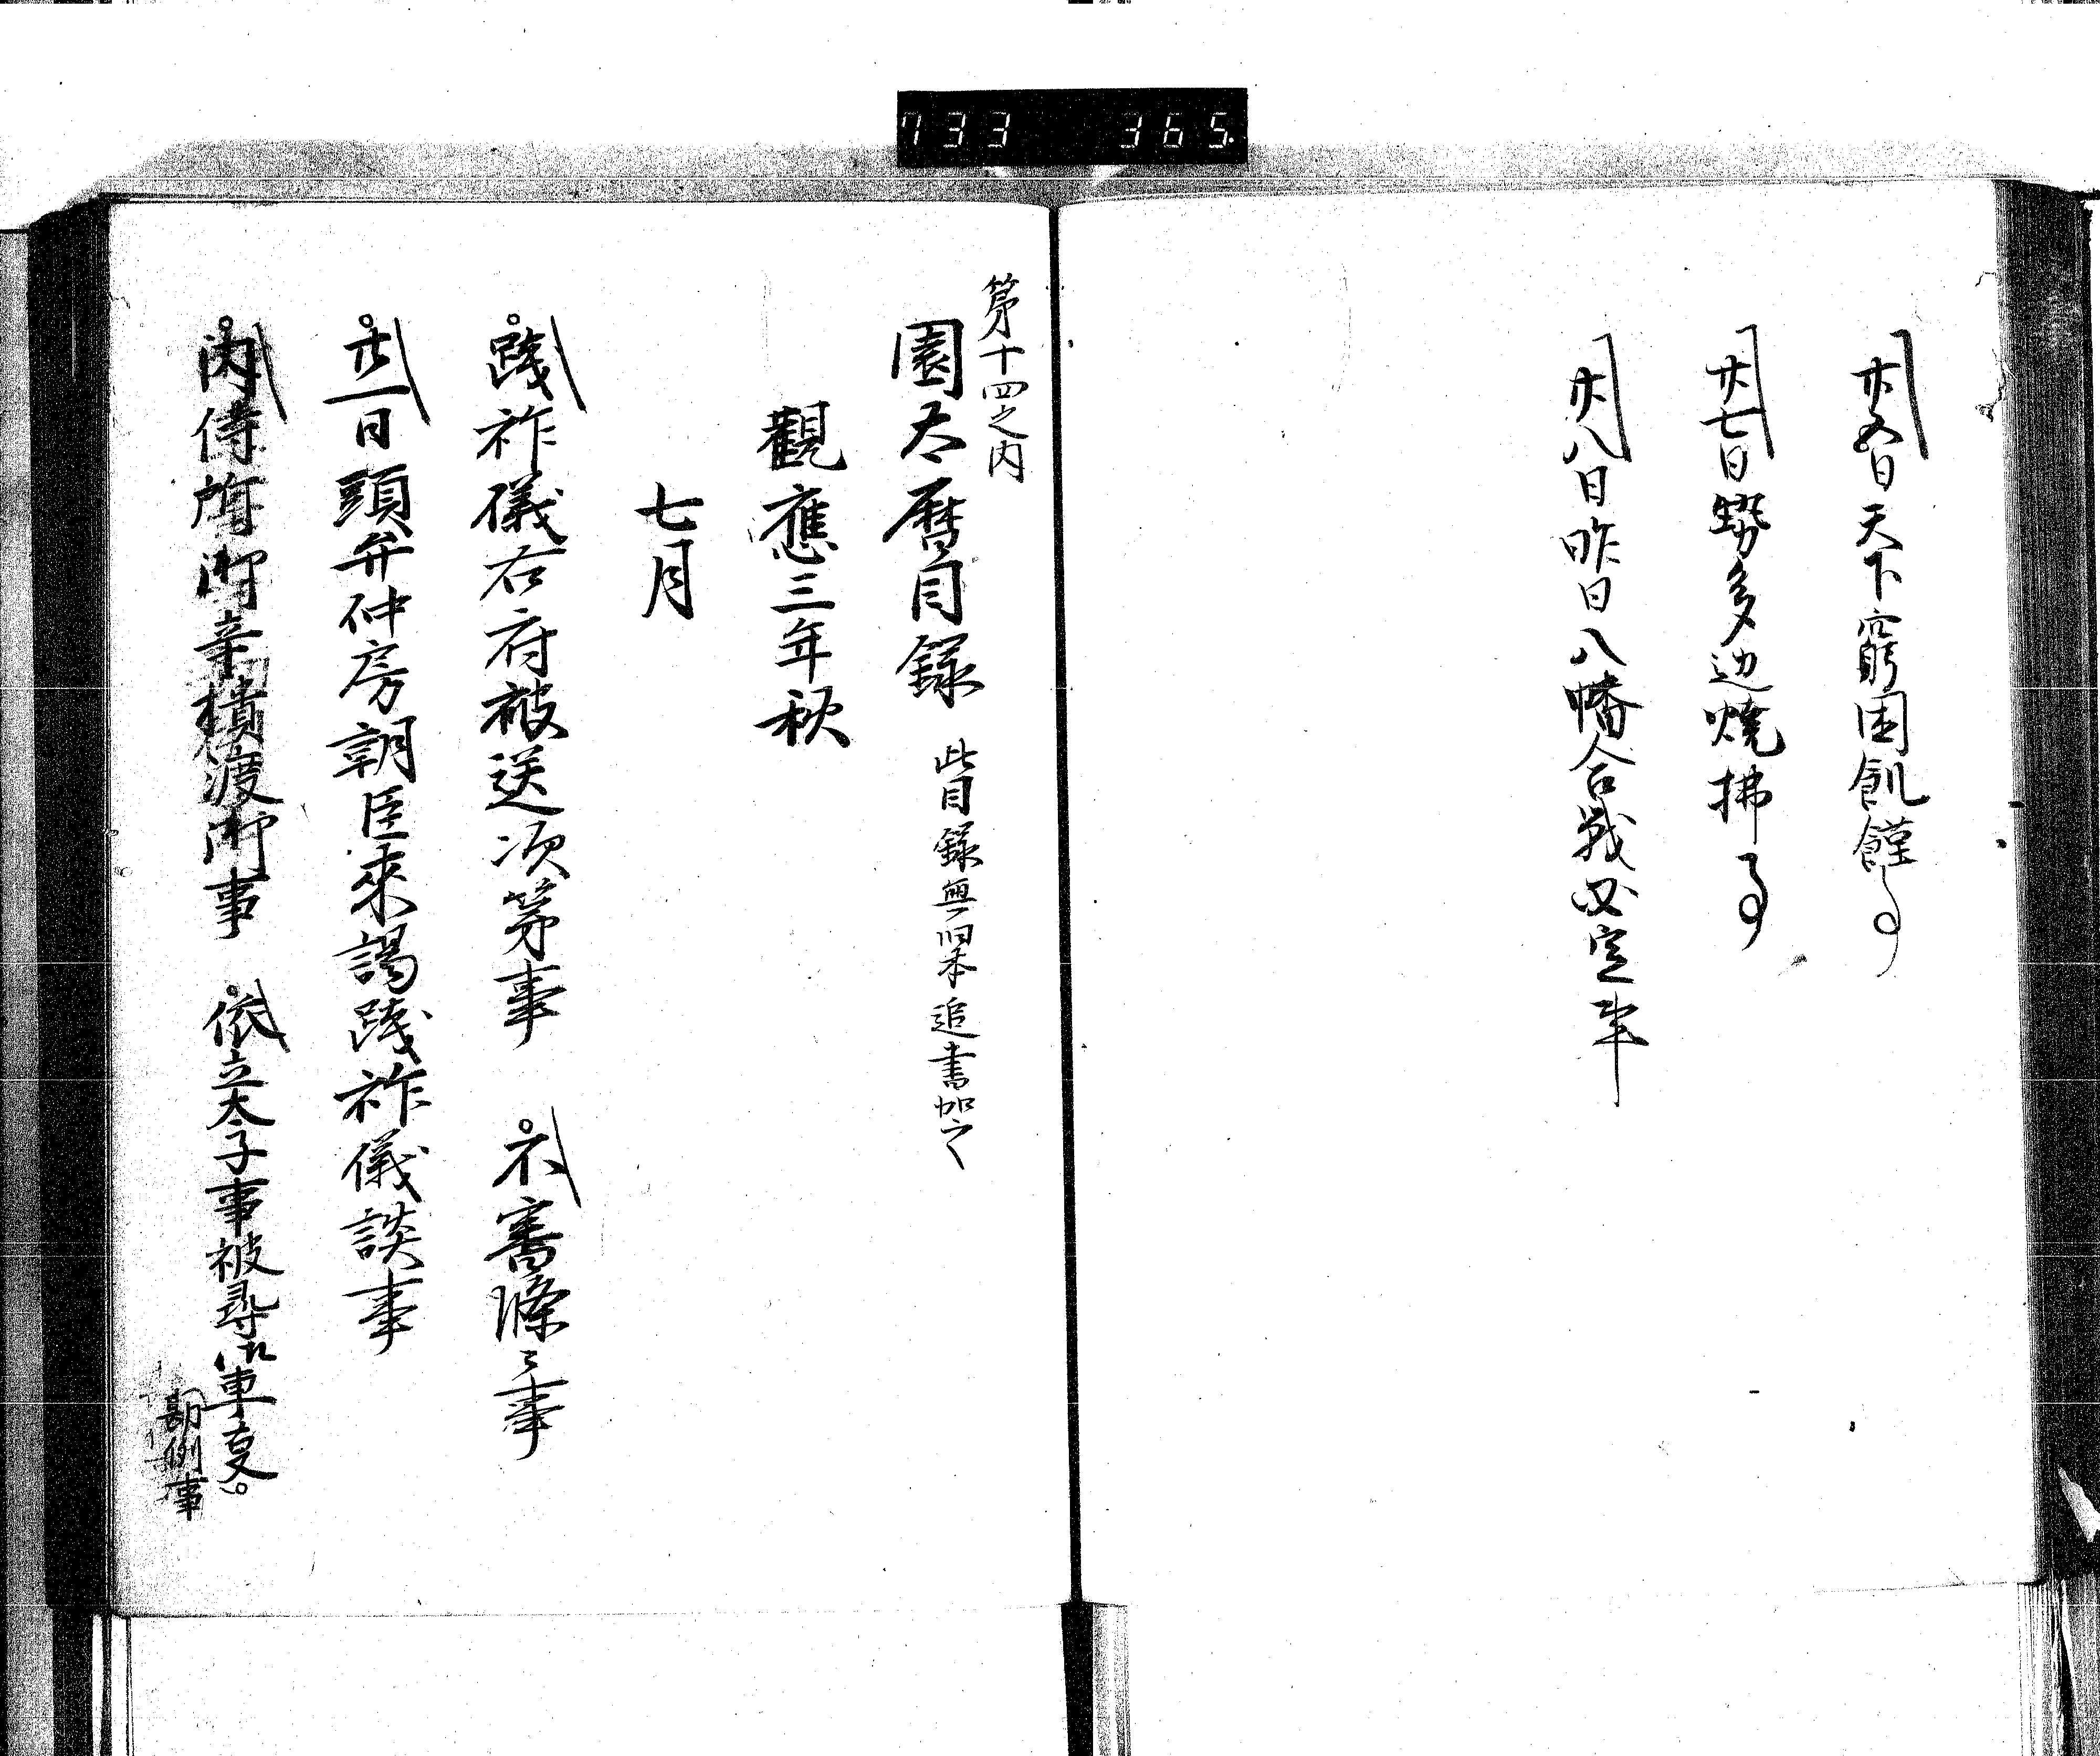 733 365
廿五日天下窮困飢饉事
廿七日 多辺焼拂事
廿八日昨日八幡合戦必定事
第十四之内
園太暦目録 此目録無旧本追書加之
觀應三年秋
七月
踐祚儀右府被送次第事 不審條々事
廿一日頭弁仲房朝臣來謁踐祚儀談事
内侍所御辛樻渡御事 依立太子事被尋 車
勘例事